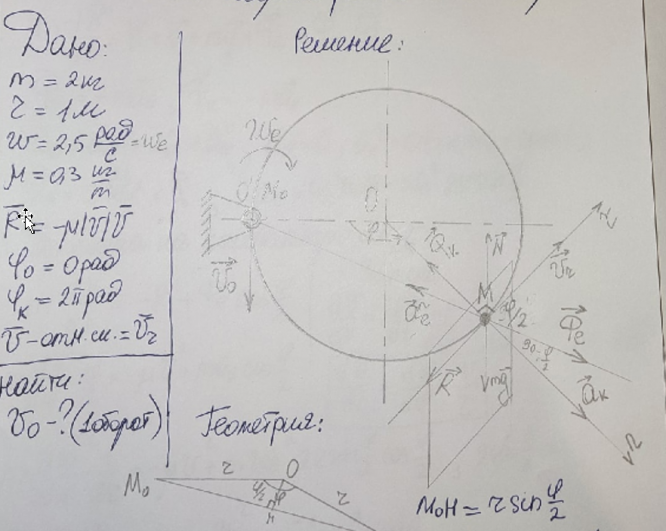 Дано:
m = 2кг
r = 1м
w = 2,5 рад/с = ωe
μ = 0,3 кг/м
R̄ = -μ|v̄|v̄
φ₀ = 0 рад
φₖ = 2π рад
v̄ - отн. ск. = v̄r
Найти:
v₀ - ? (1 оборот)
Решение:
ωe
O' M₀
O
φ
v̄₀
N̄
τ
v̄r
M
φ/2
Φ̄e
90-φ/2
R̄
mḡ
āk
n
Геометрия:
M₀
r
O
φ/2
r
H
M₀H = r sin φ/2